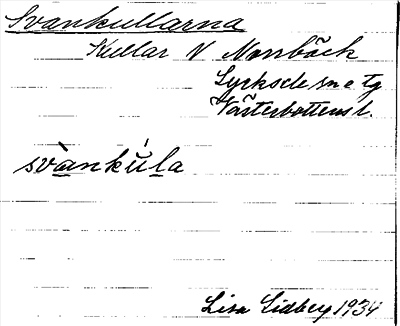 Svankullarna
Kullar N Norrbäck
Lycksele sn o tg
Västerbottens l.
svànkúla
Lisa Lidberg 1934